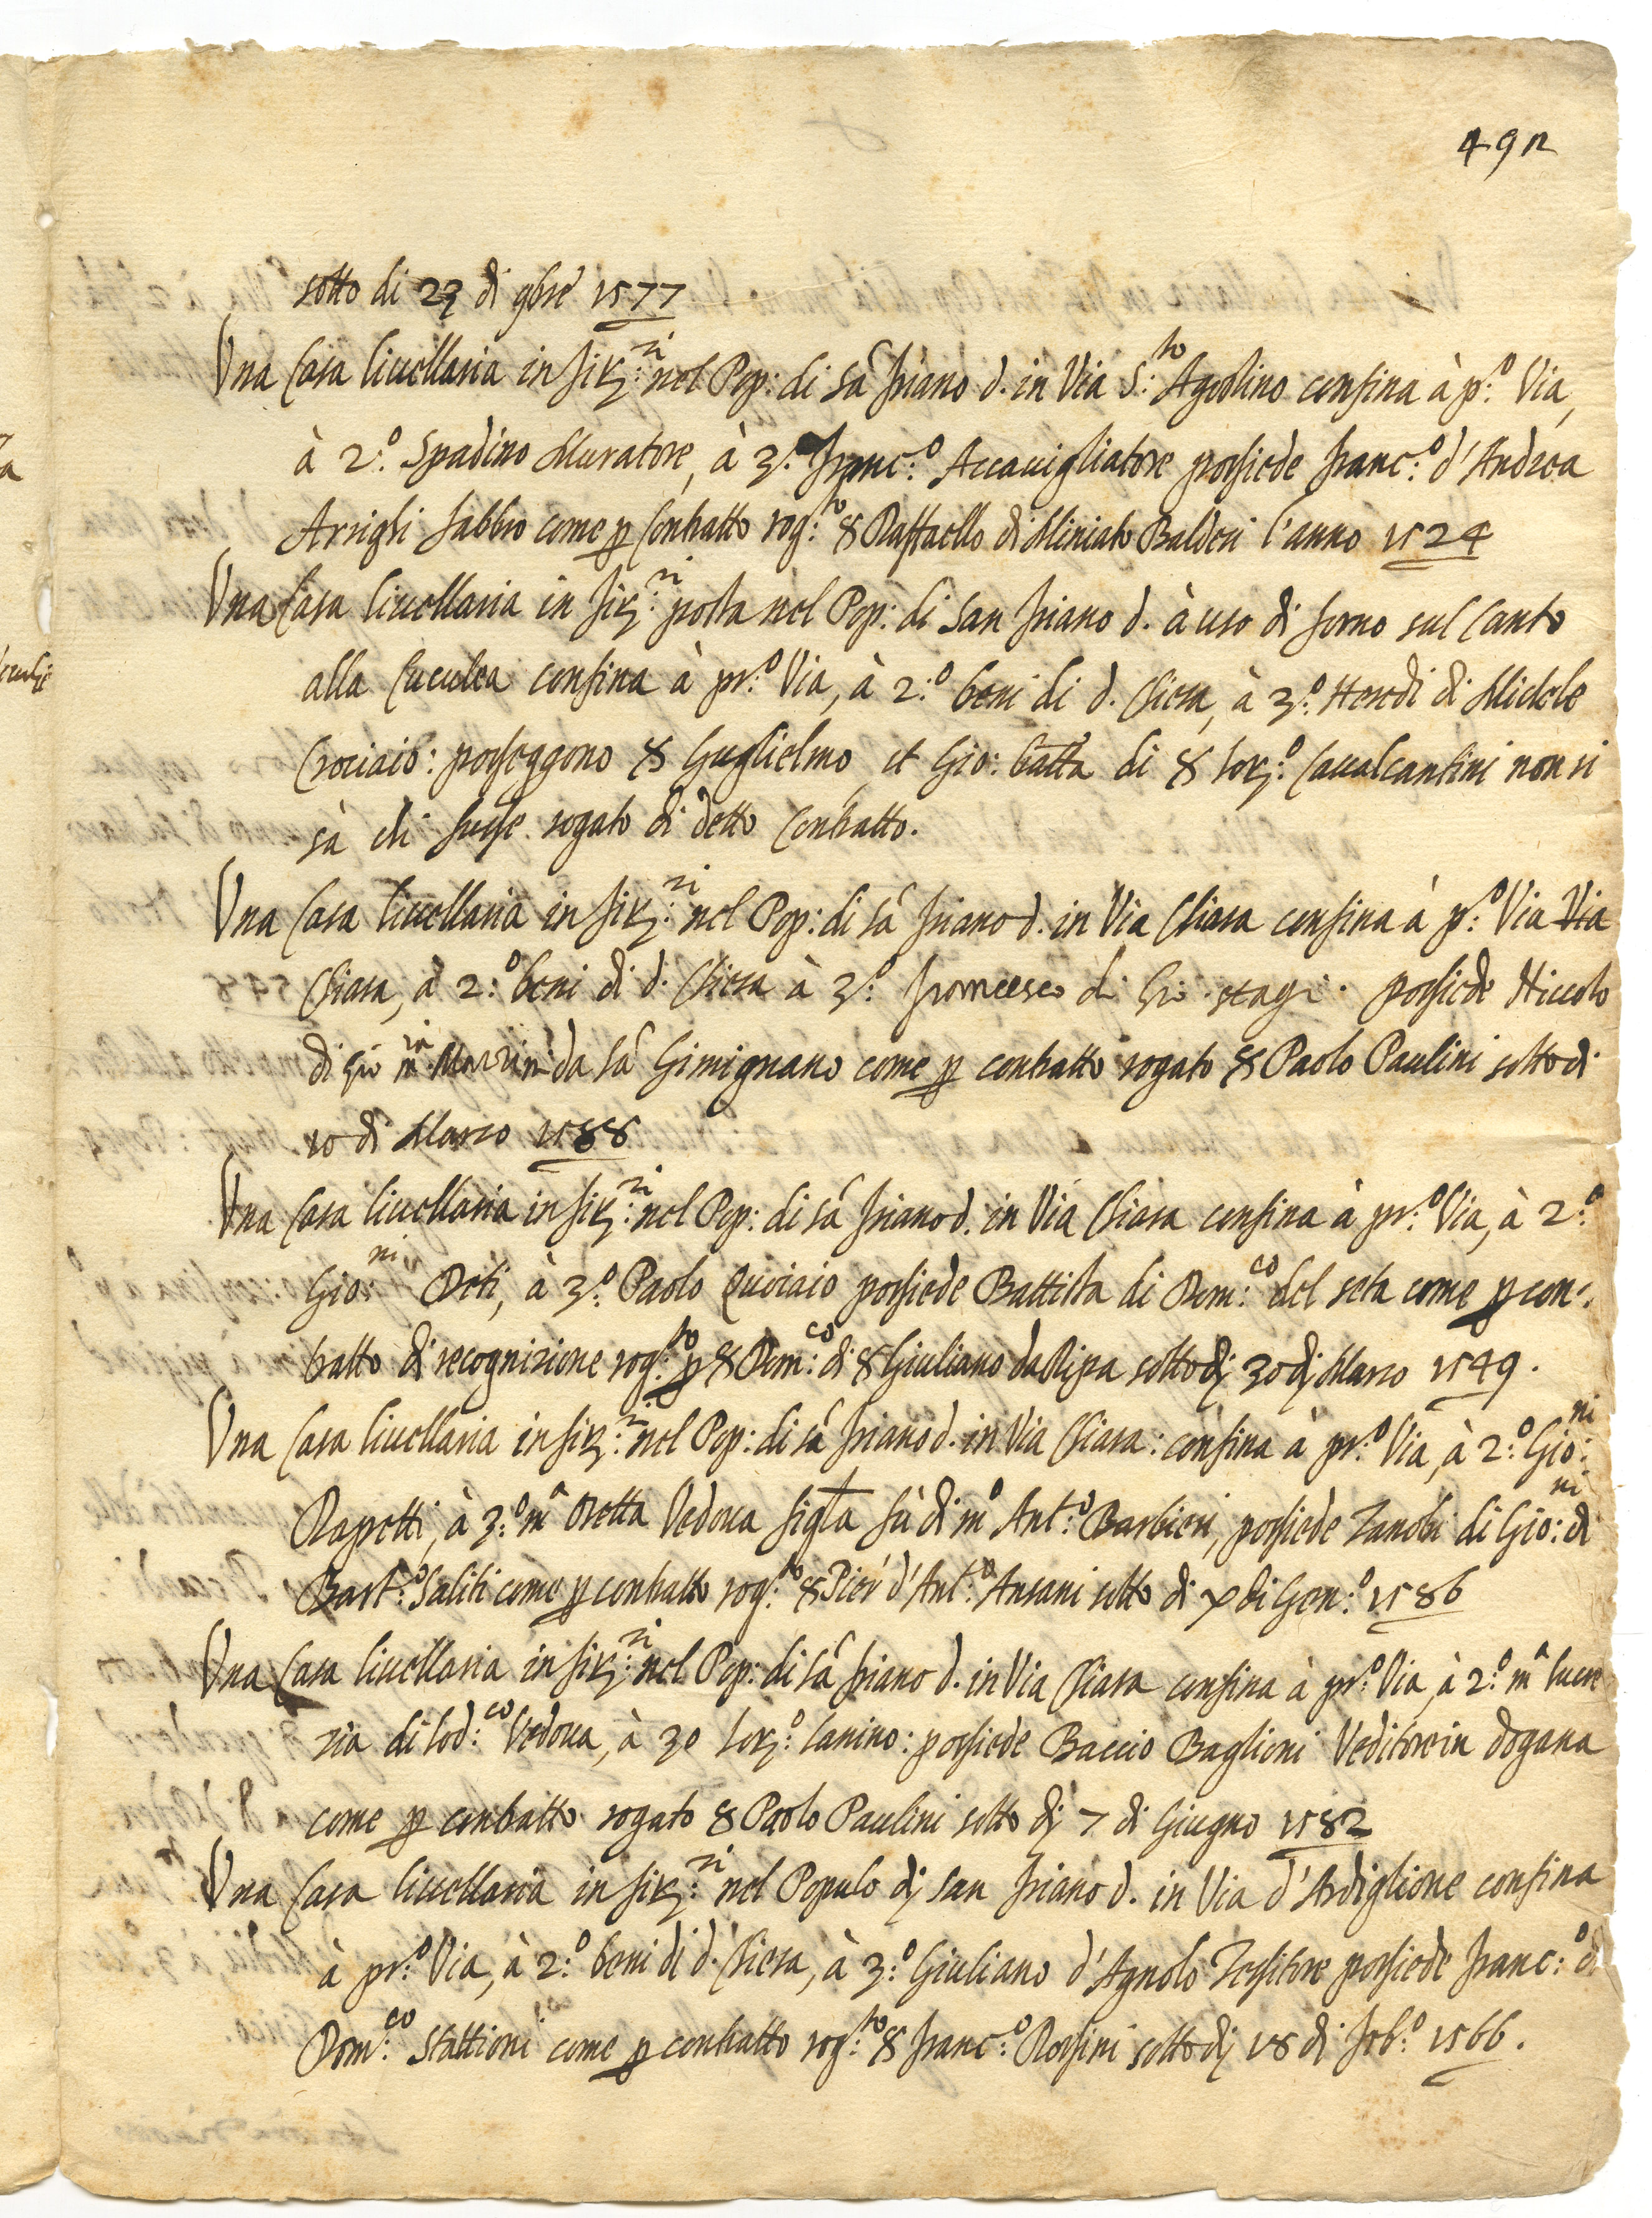 491
sotto di 23 di 9bre 1577
Una Casa livellaria in Fir:zi nel Pop: di Sã Friano d. in Via S:to Agostino confina à pr:o Via,
à 2:o Spadino Muratore, à 3:o Franc:o Accavigliatore possiede Franc:o d'Andrea
Arrighi fabbro come p Contratto rog:to S Raffaello di Miniato Baldesi l'anno 1524
Una Casa livellaria in Fir:zi posta nel Pop: di San Friano d. à uso di forno sul Canto
alla Cuculea confina à pr:o Via, à 2:o beni di d. Chiesa, à 3:o Heredi di Michele
Crociaio: posseggono S Guglielmo, et Gio: batta di S Lorz:o Cavalcantini non si
sà chi fusse rogato di detto Contratto.
Una Casa livellaria in Fir:zi nel Pop: di Sã Friano d. in Via Chiara confina à pr:o Via Via
Chiara, à 2:o beni di d. Chiesa à 3:o francesco di Gio stagi. possiede Niccolo
di Gio m:ia da Sã Gimignano come p contratto rogato S Paolo Paulini sotto di
10 di Marzo 1588
Una Casa livellaria in Fir:zi nel Pop: di Sã Friano d. in Via Chiara confina à pr:o Via, à 2:o
Gio:ni Deti, à 3:o Paolo Quoiaio possiede Battista di Dom:co del seta come p con-
tratto di recognizione rog:to p S Dom:co di S Giuliano da Ripa sotto dj 30 dj Marzo 1549.
Una Casa livellaria in Fir:zi nel Pop: di Sã Friano d. in Via Chiara: confina à pr:o Via, à 2:o Gio:ni
Rapetti, à 3:o ma Oretta Vedova figla fù di mo Ant:o Barbieri, possiede Zanobi di Gio:ni di
Bart:o Saliti come p contratto rog:to S Pier d'Ant:o Ansani sotto di x di Gen:o 1586
Una Casa livellaria in Fir:zi nel Pop: di Sã Friano d. in Via Chiara confina à pr:o Via, à 2:o ma Lucre
zia di Lod:co Vedova, à 3o Lorz:o Lanino: possiede Baccio Baglioni Veditore in dogana
come p contratto rogato S Paolo Paulini sotto dj 7 di Giugno 1582
Una Casa livellaria in Fir:zi nel Populo dj San Friano d. in Via d'Ardiglione confina
à pr:o Via, à 2:o beni di d. Chiesa, à 3:o Giuliano d'Agnolo Tessitore possiede Franc:o di
Dom:co Stattioni come p contratto rog:to S Franc:o Rossini sotto dj 18 di Feb:o 1566.